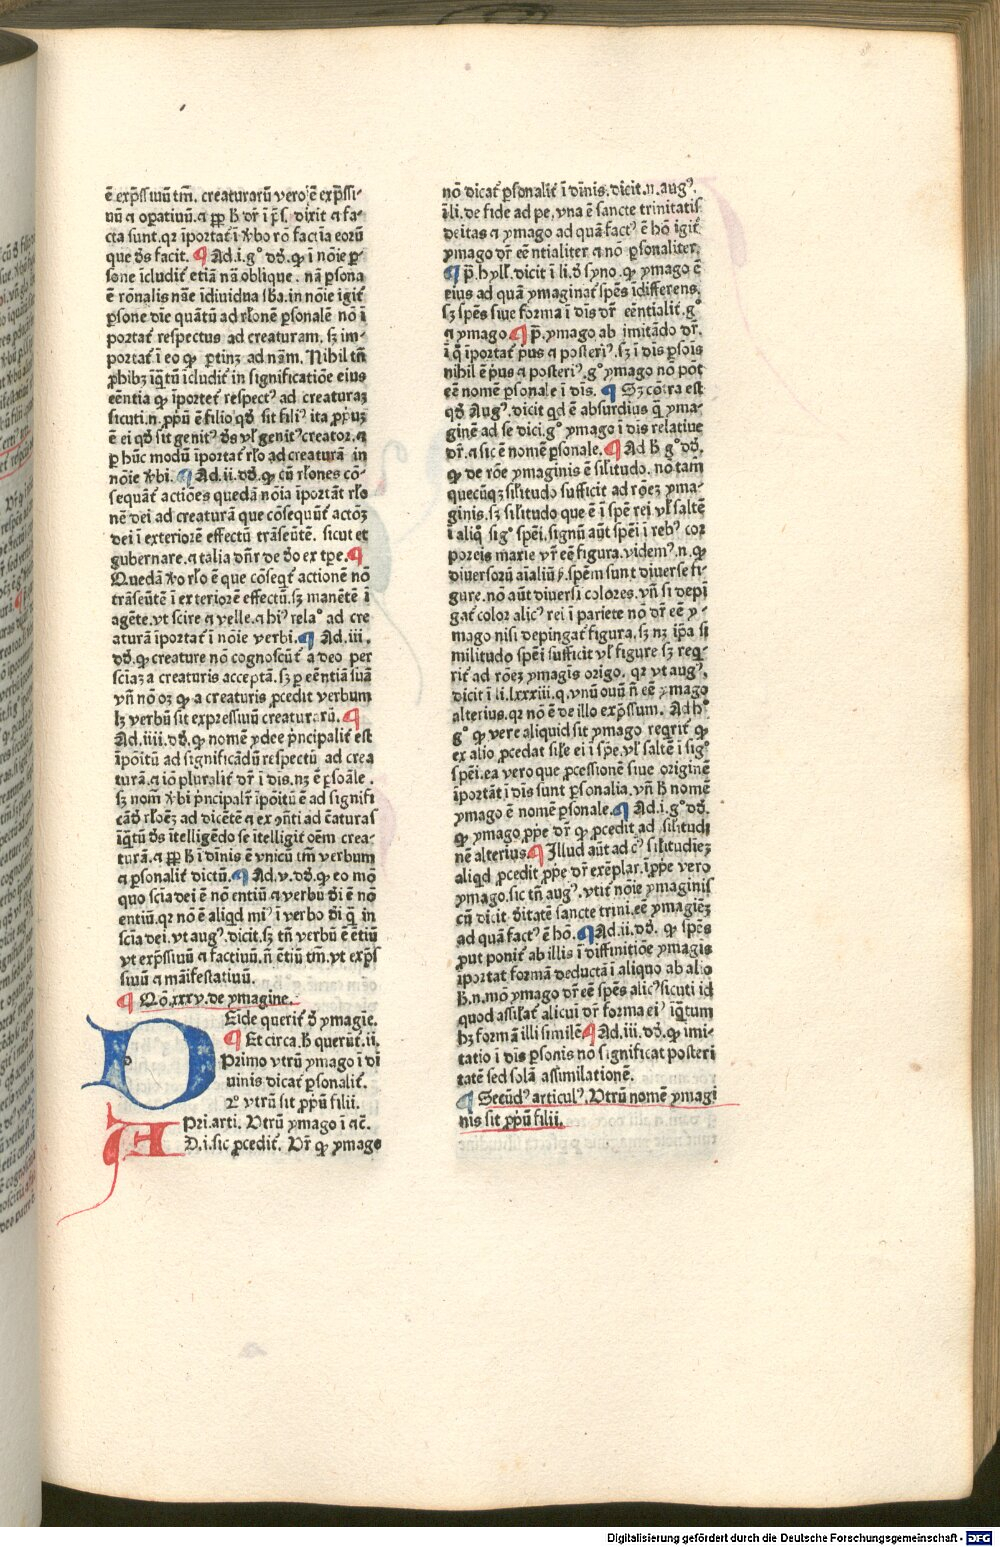 ē exp̄ssiuū tm̄. creaturarū vero ē exp̄ssi-
uū ⁊ oꝑatiuū.⁊ ꝓp̄ h̄ dr̄ ī p̄s. dixit ⁊ fa-
cta sunt.qꝛ īportat̄ ī v̄bo rō factīa eorū
que d̄s facit. ¶ Ad.i.g° dd̄. ꝙ ī noīe ꝑ-
sone īcludit̄ etiā nā oblique. nā ꝑsona
ē rōnalis nāe īdiuidua sba.in noīe igit̄
ꝑsone dīe quātū ad rl̄onē ꝑsonalē nō ī
portat̄ respectus ad creaturam. sꝫ im-
portat̄ ī eo ꝙ ꝑtinꝫ ad nām. Nihil tn̄
ꝓhibꝫ īq̄tū īcludit̄ in significatiōe eius
eēntia ꝙ īportet̄ respectꝰ ad creaturaꝫ
sicuti.n.ꝓp̄ū ē filio qd̄ sit filiꝰ ita ꝓp̄uꝫ
ē ei qd̄ sit genitꝰ d̄s vl̄ genitꝰcreator.⁊
ꝑ hūc modū īportat̄ rl̄o ad creaturā in
noīe v̄bi. ¶ Ad.ii.dd̄.ꝙ cū rl̄ones cō-
sequāt̄ actiōes quedā noīa īportāt̄ rl̄o
nē dei ad creaturā que cōsequūt̄ actōꝫ
dei ī exteriorē effectū trāseūtē. sicut et
gubernare.⁊ talia dn̄r de d̄o ex tp̄e. ¶
Quedā v̄o rl̄o ē que cōseqt̄ actionē nō
trāseūtē ī exteriorē effectū.sꝫ manētē ī
agēte.vt scire ⁊ velle.⁊ hiꝰ rela° ad cre
aturā īportat̄ ī noīe verbi. ¶ Ad.iii.
dd̄.ꝙ creature nō cognoscūt̄ a deo per
sciāꝫ a creaturis acceptā.sꝫ ꝑ eēntiā suā
vn̄ nō oꝫ ꝙ a creaturis ꝓcedit verbum
lꝫ verbū sit expressiuū creaturarū. ¶
Ad.iiii.dd̄.ꝙ nomē ydee p̄ncipalit̄ est
īpōitū ad significādū respectū ad crea
turā.⁊ iō pluralit̄ dr̄ ī dīs.nꝫ ē ꝑsoāle.
sꝫ nom̄ v̄bi p̄ncipalr̄ īpōitū ē ad signifi
cād̄ rl̄oēꝫ ad dicētē ⁊ ex ꝯn̄ti ad c̄aturas
īq̄tū d̄s ītelligēdo se ītelligit oēm crea-
turā.⁊ ꝓp̄ h̄ ī dīnis ē vnicū tm̄ verbum
⁊ ꝑsonalit̄ dictū. ¶ Ad.v.dd̄.ꝙ eo mō
quo scīa dei ē nō entiū ⁊ verbū d̄i ē nō
entiū.qꝛ nō ē aliqd miꝰ ī verbo d̄i q̄ in
scīa dei.vt augꝰ.dicit.sꝫ tn̄ verbū ē ētiū
vt exp̄ssiuū ⁊ factiuū.n̄ ētiū tm̄.vt exp̄s
siuū ⁊ māifestatiuū.
¶ Qō.xxxv.de ymagine.
DEide querit̄ d̄ ymagīe.
¶ Et circa.h̄ querūt̄.ii.
Primo vtrū ymago ī di
uinis dicat̄ ꝑsonalit̄.
2° vtrū sit ꝓp̄ū filii.
A Pri.arti. Vtrū ymago ī ⁊c̄.
D.i.sic ꝓcedit̄. Vr̄ ꝙ ymago
nō dicat̄ ꝑsonalit̄ ī dīnis.dicit.n.augꝰ.
ī li.de fide ad pe.vna ē sancte trinitatis
deitas ⁊ ymago ad quā factꝰ ē hō igit̄
ymago dr̄ eēntialiter ⁊ nō ꝑsonaliter.
¶ p̄.hyll̄.dicit ī li.d̄ syno.ꝙ ymago ē
eius ad quā ymaginat̄ spēs īdifferens.
sꝫ spēs siue forma ī dīs dr̄ eēntialit̄.g°
⁊ ymago ¶ p̄.ymago ab imitādo dr̄.
ī q̄ īportat̄ p̄us ⁊ posteriꝰ.sꝫ ī dīs ꝑsoīs
nihil ē p̄us ⁊ posteriꝰ.g° ymago nō pōt
eē nomē ꝑsonale ī dīs. ¶ Sꝫ cōtra est
qd̄ Augꝰ.dicit qd ē absurdius q̄ yma-
ginē ad se dici.g° ymago ī dīs relatiue
dr̄.⁊ sic ē nomē ꝑsonale. ¶ Ad h̄ g° dd̄.
ꝙ de rōe ymaginis ē sil̄itudo.nō tam
quecūqꝫ sil̄itudo sufficit ad rōeꝫ yma-
ginis.sꝫ sil̄itudo que ē ī spē rei vl̄ saltē
ī aliq̄ sig° spēi.signū aūt spēi ī rebꝰ cor
poreis maxīe vr̄ eē figura.videmꝰ.n.ꝙ
diuersorū aīaliū ẜ.spēm sunt diuerse fi-
gure.nō aūt diuersi colores.vn̄ si depī
gat̄ color alicꝰ rei ī pariete nō dr̄ eē y-
mago nisi depingat̄ figura.sꝫ nꝫ ip̄a si
militudo spēi sufficit vl̄ figure sꝫ reqͥ-
rit̄ ad rōeꝫ ymagīs origo. qꝛ vt augꝰ.
dicit ī li.lxxxiii.q.vnū ouū n̄ eē ymago
alterius.qꝛ nō ē de illo exp̄ssum. Ad h°
g° ꝙ vere aliquid sit ymago reqͥrit̄ ꝙ
ex alio ꝓcedat sil̄e ei ī spē.vl̄ saltē ī sig°
spēi.ea vero que ꝓcessionē siue originē
īportāt̄ ī dīs sunt ꝑsonalia.vn̄ h̄ nomē
ymago ē nomē ꝑsonale. ¶ Ad.i.g° dd̄.
ꝙ ymago ꝓp̄e dr̄ ꝙ ꝓcedit ad sil̄itudi
nē alterius. ¶ Illud aūt ad cꝰ sil̄itudieꝫ
aliqd ꝓcedit ꝓp̄e dr̄ exēplar.īp̄pe vero
ymago.sic tn̄ augꝰ.vtit̄ noīe ymaginis
cū dicit d̄itatē sancte trini.eē ymagieꝫ
ad quā factꝰ ē hō. ¶ Ad.ii.dd̄. ꝙ spēs
ꝓut ponit̄ ab illis ī diffinitiōe ymagīs
īportat formā deductā ī aliquo ab alio
h̄.n.mō ymago dr̄ eē spēs alicꝰ sicuti id
quod assil̄at̄ alicui dr̄ forma eiꝰ īq̄tum
hꝫ formā illi similē ¶ Ad.iii.dd̄.ꝙ imi-
tatio ī dīs ꝑsonis nō significat posteri
tatē sed solā assimilationē.
¶ Secūdꝰ articulꝰ. Vtrū nomē ymagi
nis sit ꝓp̄ū filii.
Digitalisierung gefördert durch die Deutsche Forschungsgemeinschaft - DFG